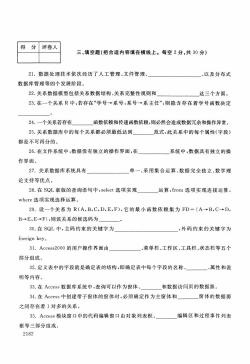 得 分 评卷人
三、填空题(把合适内容填在横线上。每空2分,共30分)
21. 数据处理技术依次经历了人工管理、文件管理、 ,以及分布式
数据库管理等的个发展阶段。
22. 关系数据模型包括关系数据结构、关系完整性规则和 这三个方面。
23. 在一个关系R中,若存在"学号→系号;系号→系主任";则隐含存在着学号函数决定
。
24. 一个关系若存在 函数依赖和传递函数依赖,则必然会造成数据冗余和操作异常。
25. 关系数据库中的每个关系都必须最低达到 范式,此关系中的每个属性(字段)
都是不可再分的。
26. 在文件系统中,数据没有独立的操作界面,在 系统中,数据具有独立的操
作界面。
27. 关系数据库系统具有 单一、采用集合运算、数据完全独立、数学理
论支持等优点。
28. 在SQL新版的查询语句中,select选项实现 运算,from选项实现连接运算,
where选项实现选择运算。
29. 设一个关系为R(A,B,C,D,E,F),它的最小函数依赖集为FD={A→B,C→D,
B→E,E→F},则该关系的候选码为 。
30. 在SQL中,主码约束的关键字为 ,外码约束的关键字为
foreign key。
31. Access2000的用户操作界面由 、菜单栏、工作区、工具栏、状态栏等五个
部分组成。
32. 定义表中的字段就是确定表的结构,即确定表中每个字段的名称、 、属性和说
明等内容。
33. 在Access数据库系统中,查询可以作为窗体、 和数据访问页的数据源。
34. 在Access中创建带子窗体的窗体时,必须确定作为主窗体和 窗体的数据源
之间存在着1对多的关系。
35. Access模块窗口中的代码编辑窗口由对象列表框、 编辑区和过程事件列表
框等三部分组成。
2182